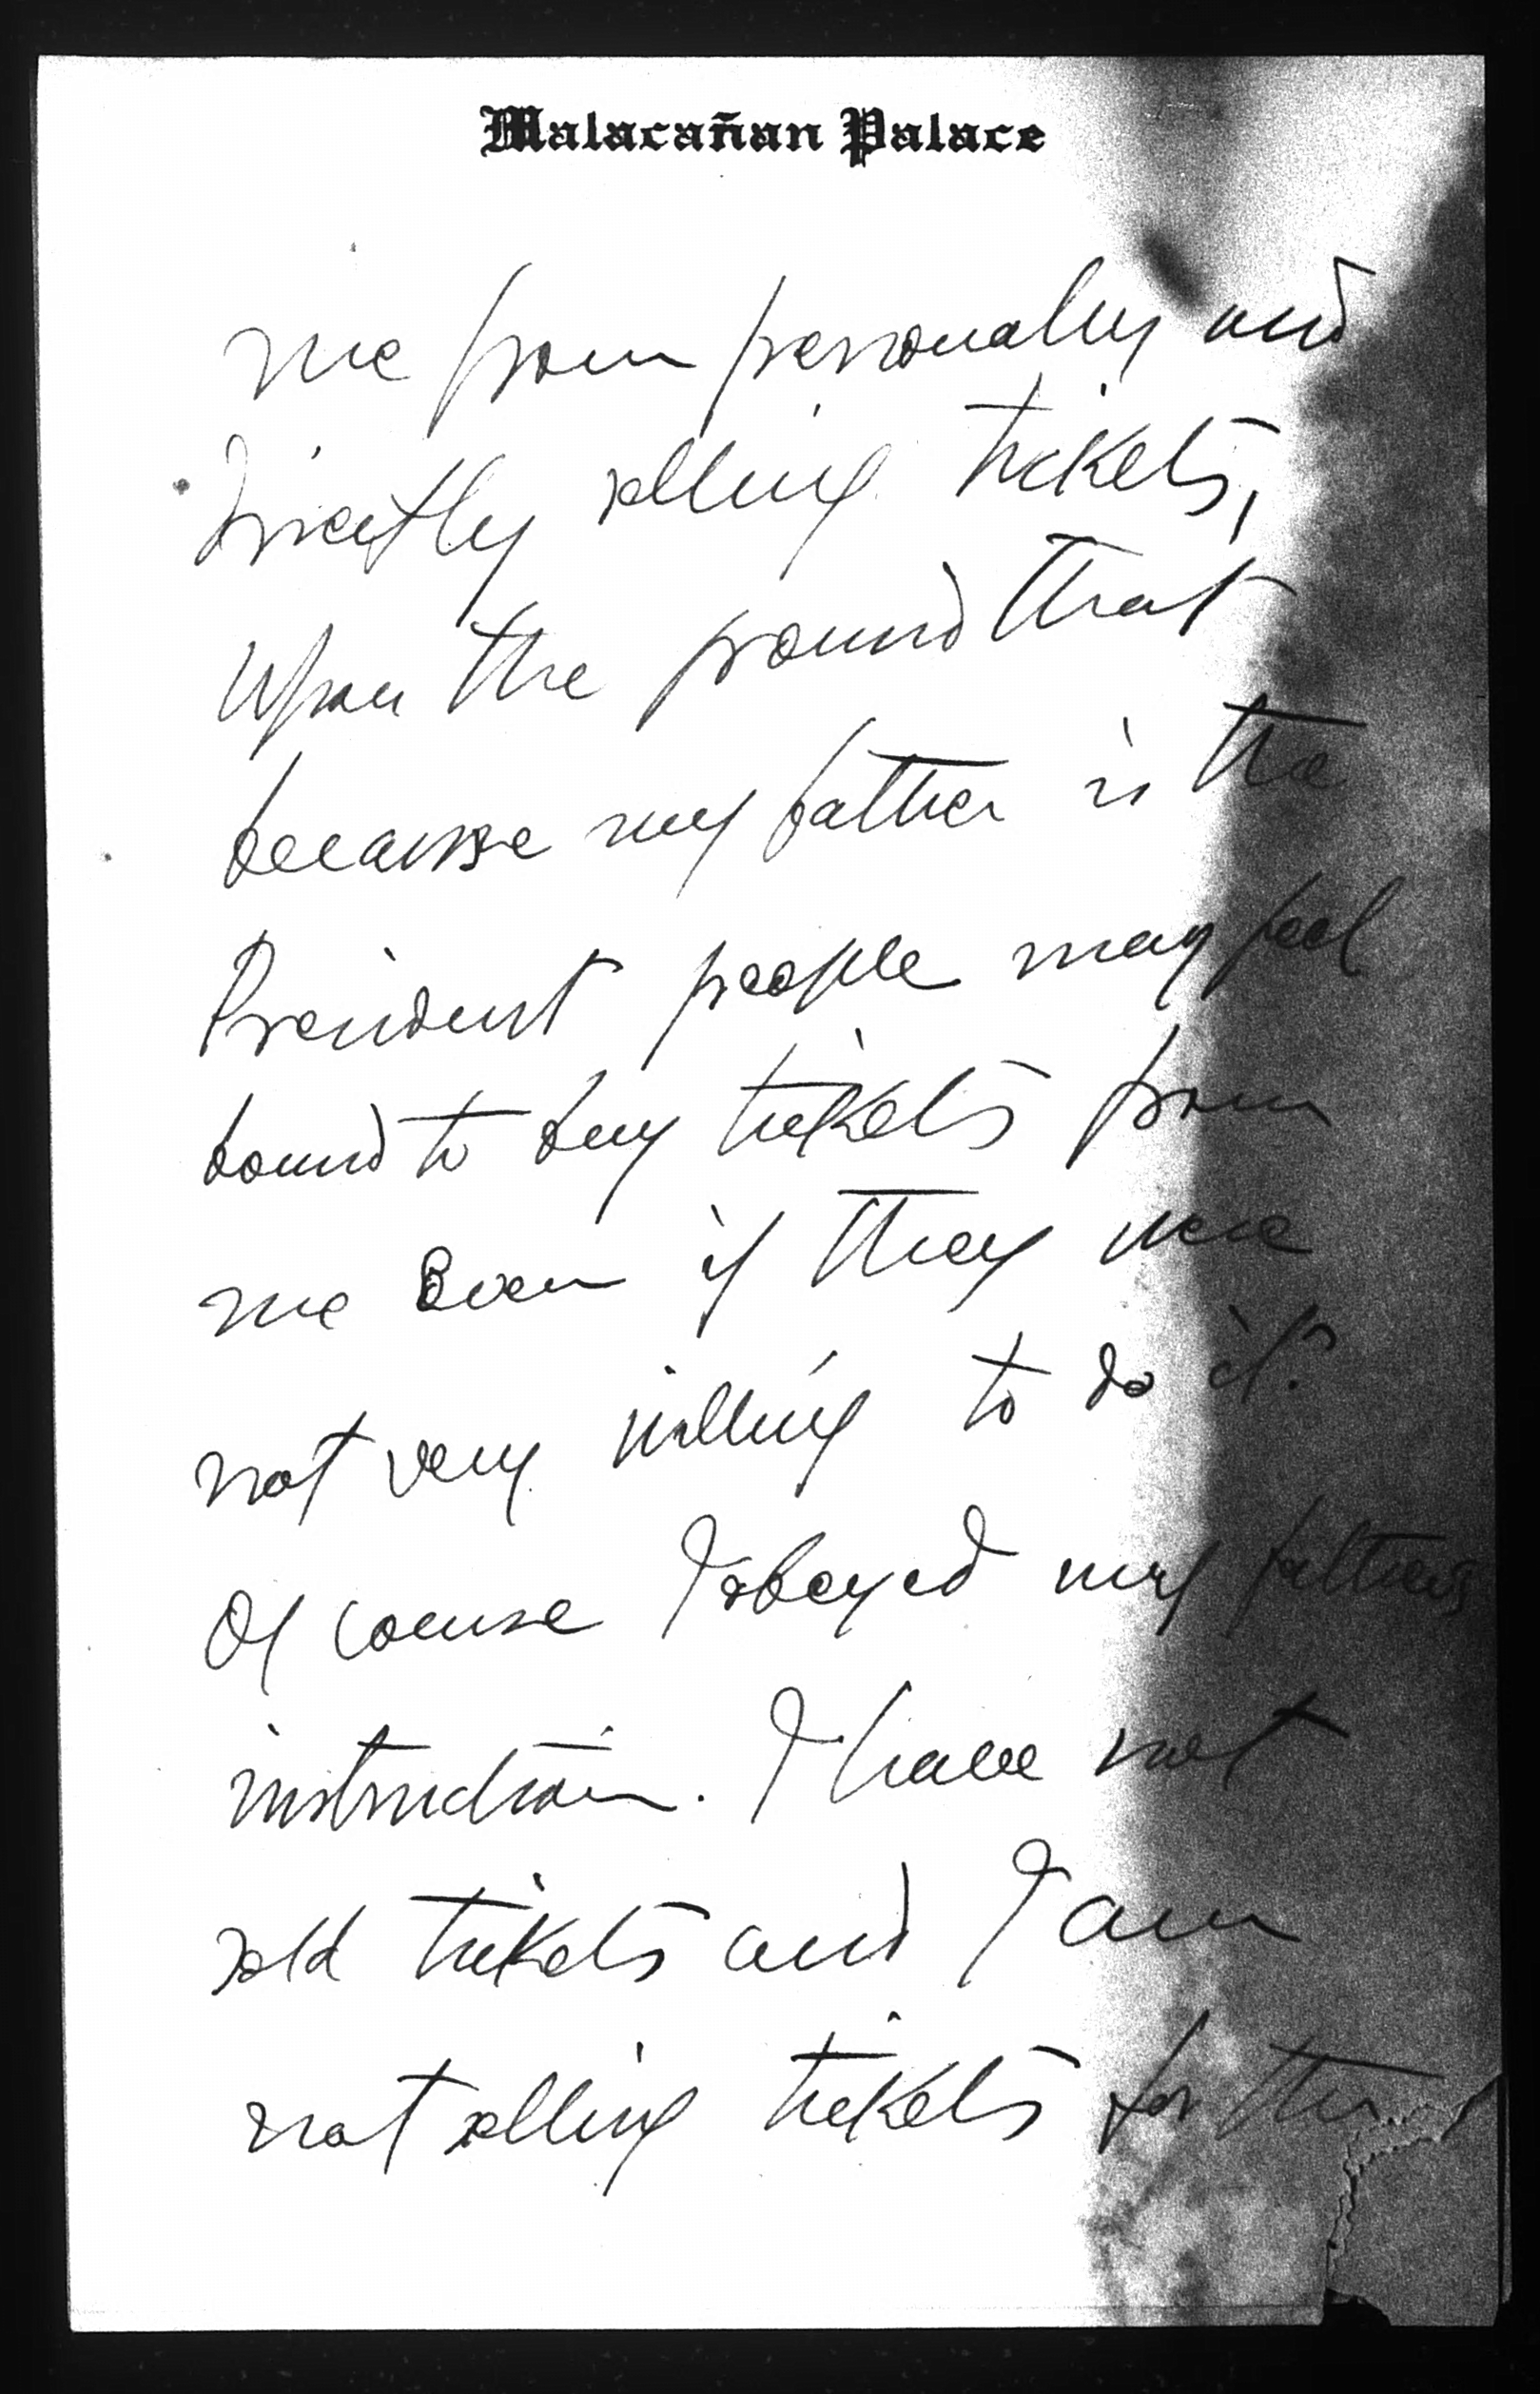 Malacañan Palace
me from personally and
directly selling tickets,
upon the ground that
because my father is the
President people may feel
bound to buy tickets from
me Even if they were
not very willing to do it.
Of course I obeyed my fathers
instruction. I have not
sold tickets and I am
not selling tickets for the